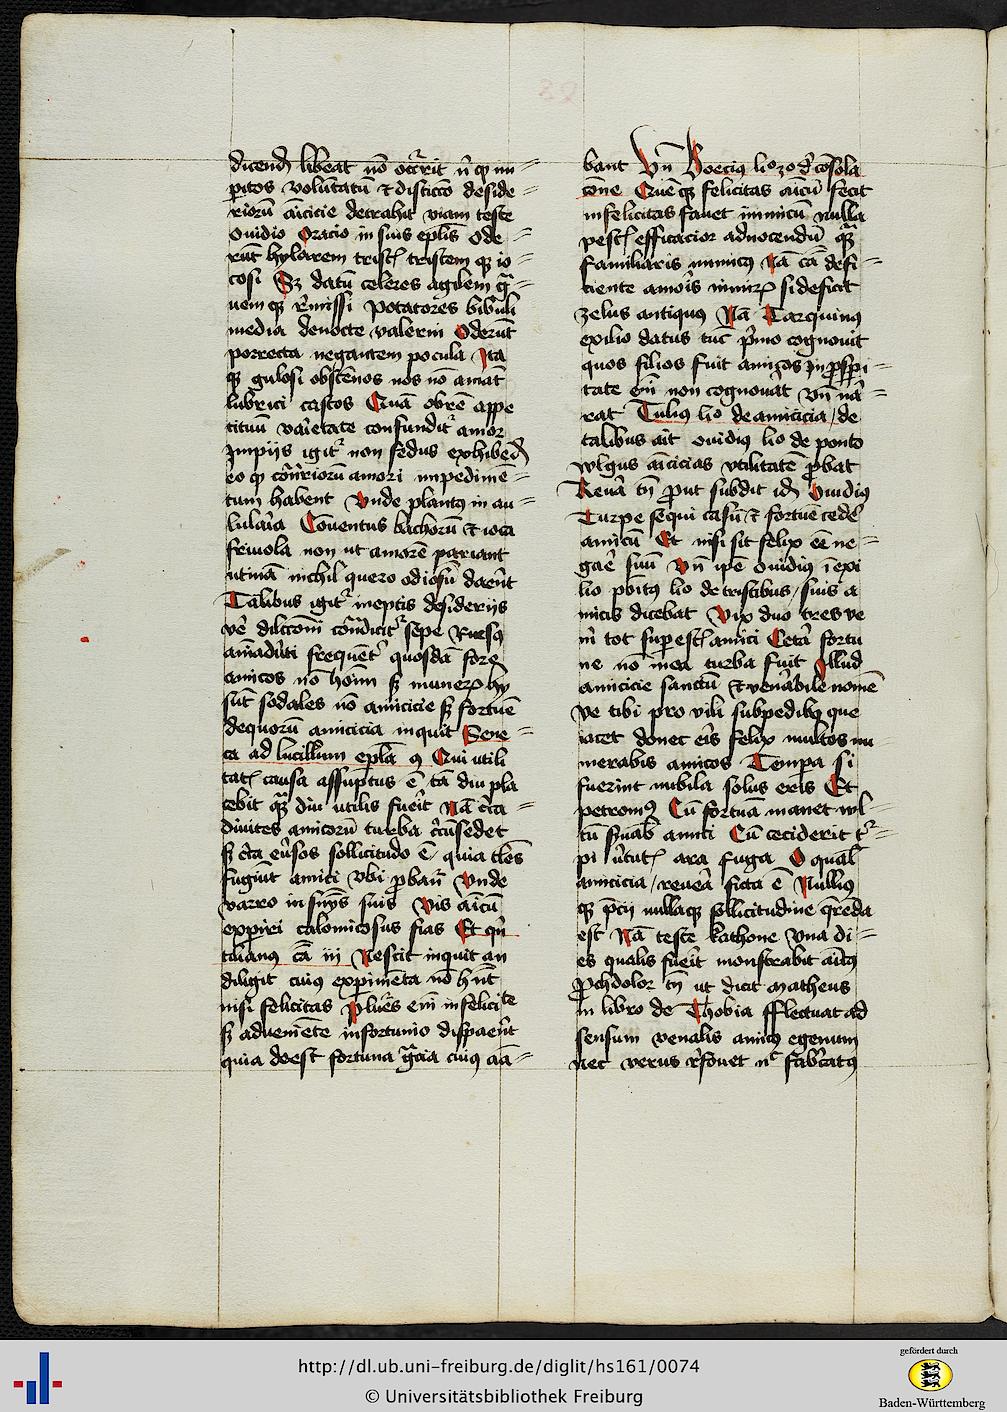 dicend libeat nō occ̄rit
ꝑitos volūtatū ⁊ disticcō deside
riorū aīcicie detrahit viam teste
Ouidio Oracio in suis ep̄lis Ode
rūt hylarem tristꝭ tristem qꝫ io
cosi Sꝫ datū celeres agilem
uemqꝫ remissi Potatores bibuli
media denocte valerni Oderūt
porrecta negantem pocula Ita
qꝫ gulosi obscenos nos nō amāt
lubrici castos Quā obrē appe
tituū vaietate confundit᷑ amor
Impijs igit᷑ non fedus exhibend
eo ꝙ cōtrriorū amori impedimē
tum habent Vnde plantꝰ in au
lularia Conuentus bachorū ⁊ ioca
friuola non ut amorē pariant
utinā nichil quero odiosū daent
Talibus igit᷑ ineptis desiderijs
sepe
frequēt quosdā fore
amicos nō hoīm sꝫ munerꝝ hy
sūt sodales nō amicicie sꝫ fortūe
dequorū amicicia inquit Sene
ca ad lucillum ep̄lā 9 Qui utili
tatꝭ causa assūptus ē tā diu pla
cebit qꝫ diu utilis fuerit Nā circa
diuites amicorū turba circūsedet
sꝫ cīta eūsos sollicitudo ē quia
fugiūt amici vbi ꝓbant Vnde
varro in suis Vis amicū
experiri calomicosus fias Et qn
tilianꝰ cā iij Nescit inquit an
diligit cuiꝰ experimēta nō hn̄t
nisi felicitas Plures em̄ infelicite
sꝫ adueniēte infortunio dispaent
quia deest fortuna gr̄acia cuiꝰ amā
bant Vn̄ Boecius lio 2o d̄ cōsola
cone Quēqꝫ felicitas amicū fecit
infelicitas facit inimicū nulla
pestꝭ efficacior adnocendū qꝫ
familiaris inimicꝰ Nā cā defi
ciente amoris si deficit
zelus antiquꝰ Nā Tarquinꝰ
exilio datus tūc p̄mo cognouit
quos filios fuit amicos In ꝓspi
tate em̄ non cognouāt Vn̄ nār
rat Tuliꝰ lio de amicicia / de
talibus ait ouidiꝰ lio de ponto
wlgus aīcicias vtilitatē ꝓbat
Reuā tn̄ ꝓut subdit id Ouidiꝰ
Turpe sequi casū ⁊ fortūe cede
amicū Et nisi sit felix ēe ne
gare suū Vn̄ ip̄e Ouidiꝰ ī exi
lio pōitꝰ lio de tristibus / suis a
micis dicebat Vix duo tres ve
m̄ tot supestꝭ amici Cetā fortu
ne nō mea turba fuit Illud
amicicie sanctū ⁊ venābile nomē
ve tibi pro vili subpedibꝫ que
iacet donec eris felix multos nu
merabis amicos Tempa si
fuerint nubila solus eris Et
petroniꝰ Cū fortuā manet wl
tū sūab amici Cū ceciderit t᷑
pi ūtutꝭ ara fuga O qual
amicicia / reuerā ficta ē Nulliꝰ
qꝫ p̄cij nullaqꝫ sollicitudine q̄reda
est Nā teste kathone Vna di
es qualis fuerit monstrabit amicꝰ
Prohdolor tn̄ ut dicit Matheus
in libro de Thobia fflectuat ad
sensum venalis amicꝰ egenum
nec verus fab̄catꝰ
http://dl.ub.uni-freiburg.de/diglit/hs161/0074
© Universitätsbibliothek Freiburg
gefördert durch
Baden-Württemberg